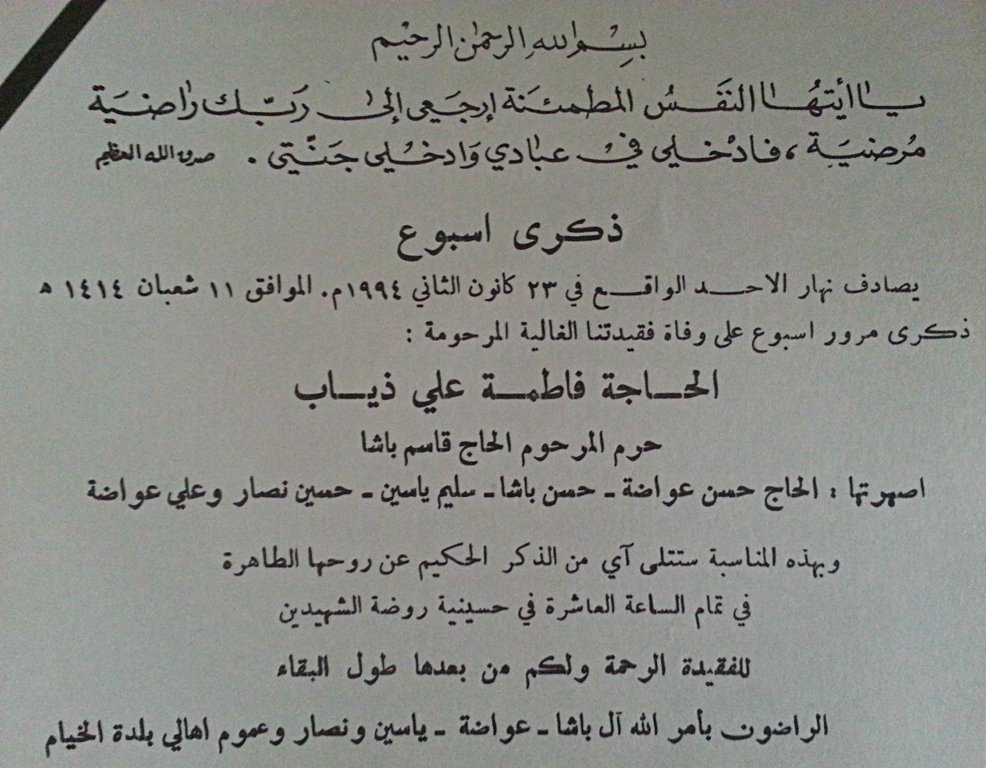 بِسْمِ اللهِ الرحمٰن الرحيْم
يا أيتهُا النفَسُ المطمئنَة إرجَعي إلىٰ رَبّك راضيَة
مُرضيَة، فادْخلي فيْ عبادي وَادخُلي جَنّتي. صدق الله العظيم
ذكرى اسبوع
يصادف نهار الاحد الواقع في ٢٣ كانون الثاني ١٩٩٤م. الموافق ١١ شعبان ١٤١٤ هـ
ذكرى مرور اسبوع على وفاة فقيدتنا الغالية المرحومة :
الحاجة فاطمة علي ذياب
حرم المرحوم الحاج قاسم باشا
اصهرتها : الحاج حسن عواضة - حسن باشا - سليم ياسين - حسين نصار وعلي عواضة
وبهذه المناسبة ستتلى آي من الذكر الحكيم عن روحها الطاهرة
في تمام الساعة العاشرة في حسينية روضة الشهيدين
للفقيدة الرحمة ولكم من بعدها طول البقاء
الراضون بأمر الله آل باشا - عواضة - ياسين ونصار وعموم اهالي بلدة الخيام